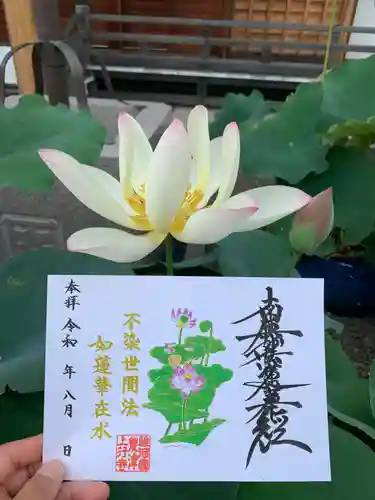 南無妙法蓮華経
不染世間法
如蓮華在水
奉拝 令和 年 八月 日